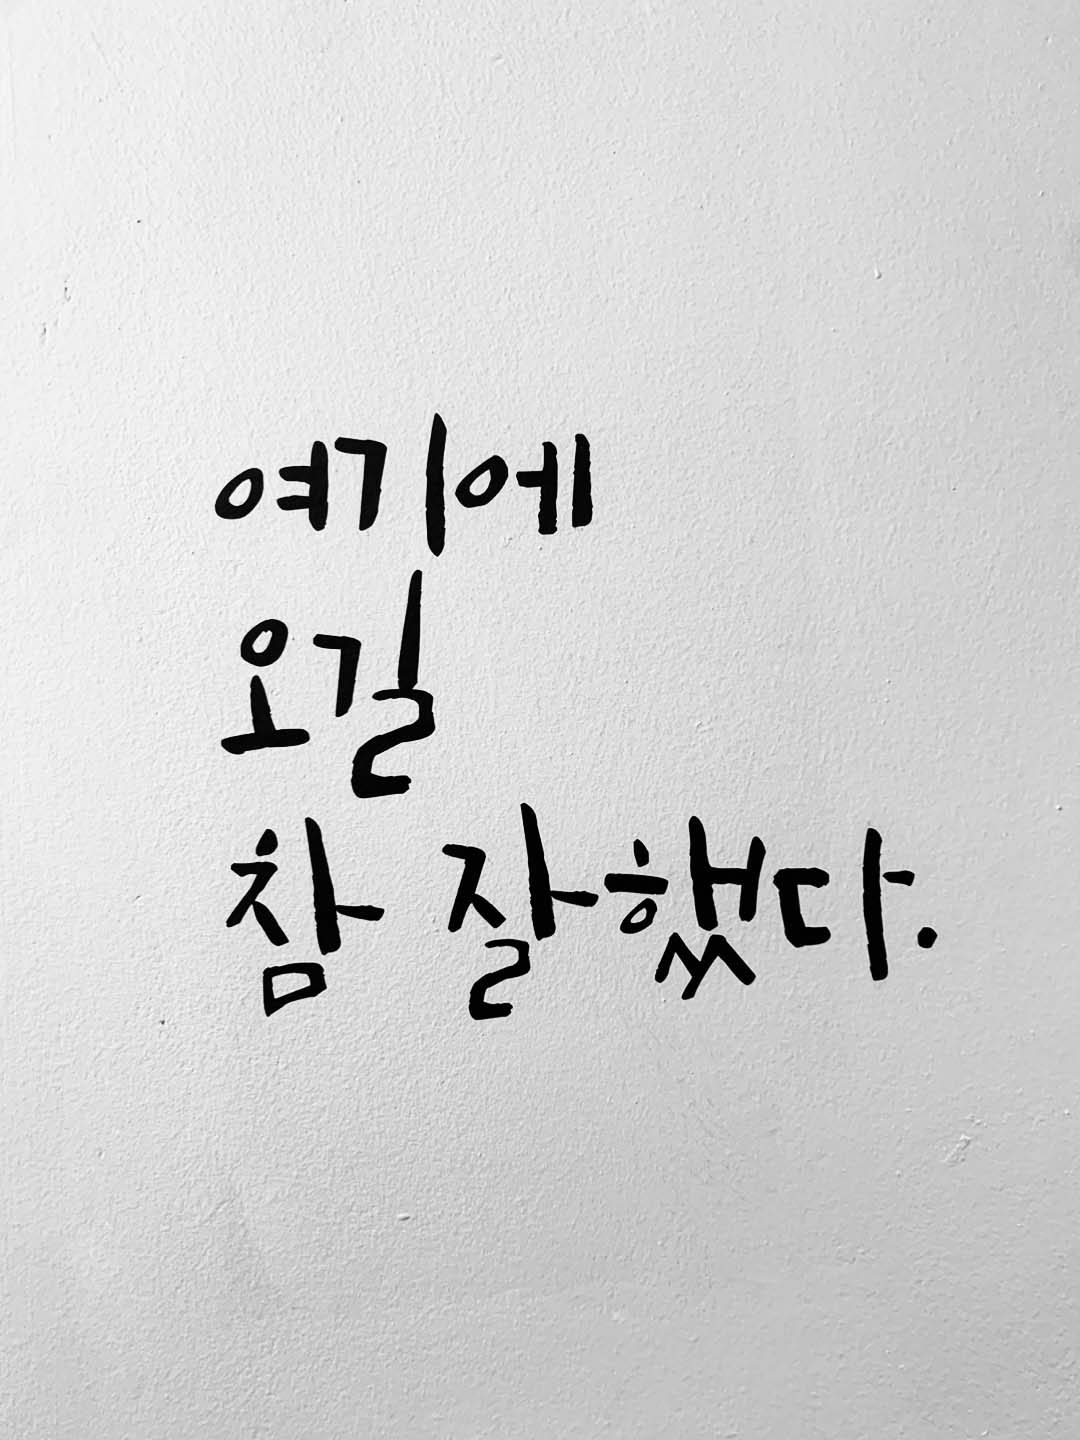 여기에
오길
참 잘했다.